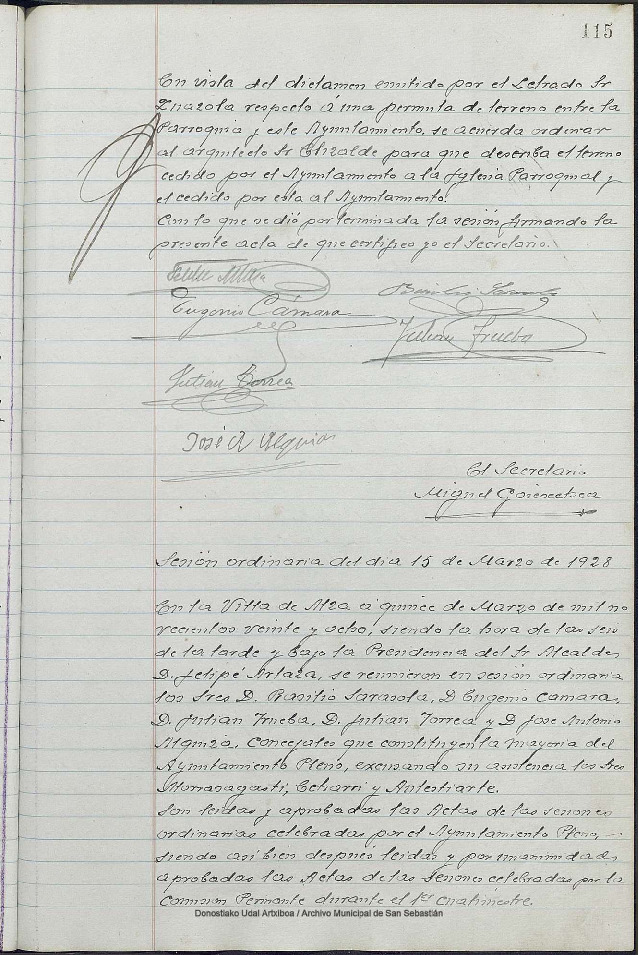 115
En vista del dictamen emitido por el Letrado Sr
Zuazola respecto á una permuta de terreno entre la
Parroquia y este Ayuntamiento, se acuerda ordenar
al arquitecto Sr Elizalde para que describa el terreno
cedido por el Ayuntamiento a la Iglesia Parroquial y
el cedido por esta al Ayuntamiento.
Con lo que se dió por terminada la sesión, firmando la
presente acta de que certifico yo el Secretario.
Eugenio Cámara
Julian Trueba
Julian Torrea
José A
El Secretario
Miguel Goicoechea
Sesión ordinaria del dia 15 de Marzo de 1928
En la Villa de Alza á quince de Marzo de mil no
vecientos veinte y ocho, siendo la hora de las seis
de la tarde y bajo la Presidencia del Sr Alcalde
D. Felipe Arlaza, se reunieron en sesión ordinaria
los Sres D. Basilio Sarasola, D Eugenio Camara,
D. Julian Trueba, D. Julian Torrea y D Jose Antonio
Concejales que constituyen la mayoria del
Ayuntamiento Pleno, excusando su asistencia los Sres
Echarri y
Son leidas y aprobadas las Actas de las sesiones
ordinarias celebradas por el Ayuntamiento Pleno,
siendo asi bien despues leidas y por unanimidad
aprobadas las Actas de las Sesiones celebradas por la
Comision Permante durante el 1er cuatrimestre.
Donostiako Udal Artxiboa / Archivo Municipal de San Sebastián